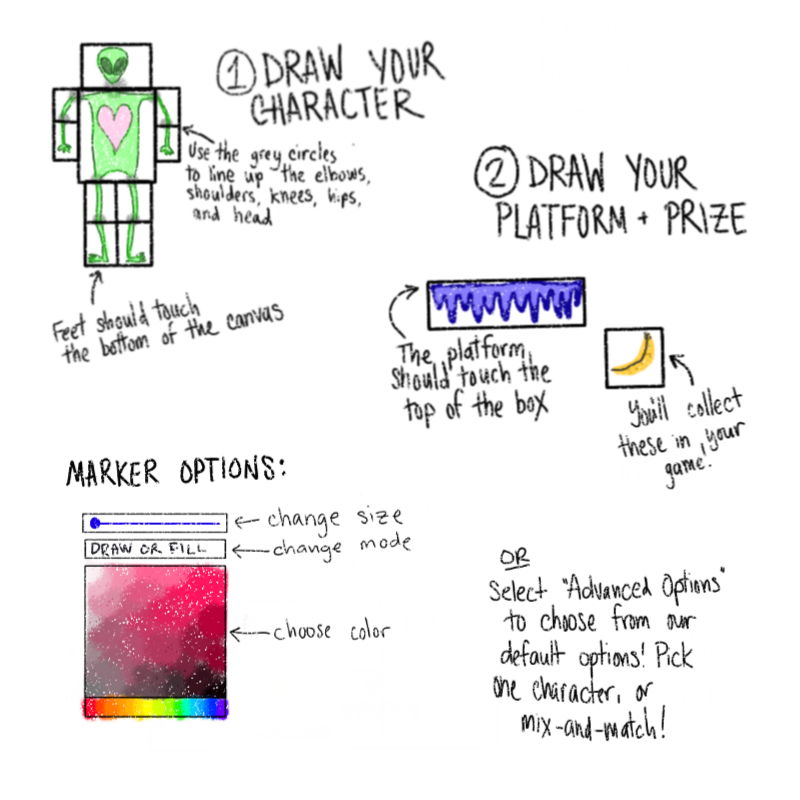 1 DRAW YOUR
CHARACTER
Use the grey circles
to line up the elbows,
shoulders, knees, hips,
and head
Feet should touch
the bottom of the canvas
2 DRAW YOUR
PLATFORM + PRIZE
The platform
should touch the
top of the box
You'll collect
these in your
game!
MARKER OPTIONS:
change size
DRAW OR FILL
change mode
choose color
OR
Select "Advanced Options"
to choose from our
default options! Pick
one character, or
mix-and-match!